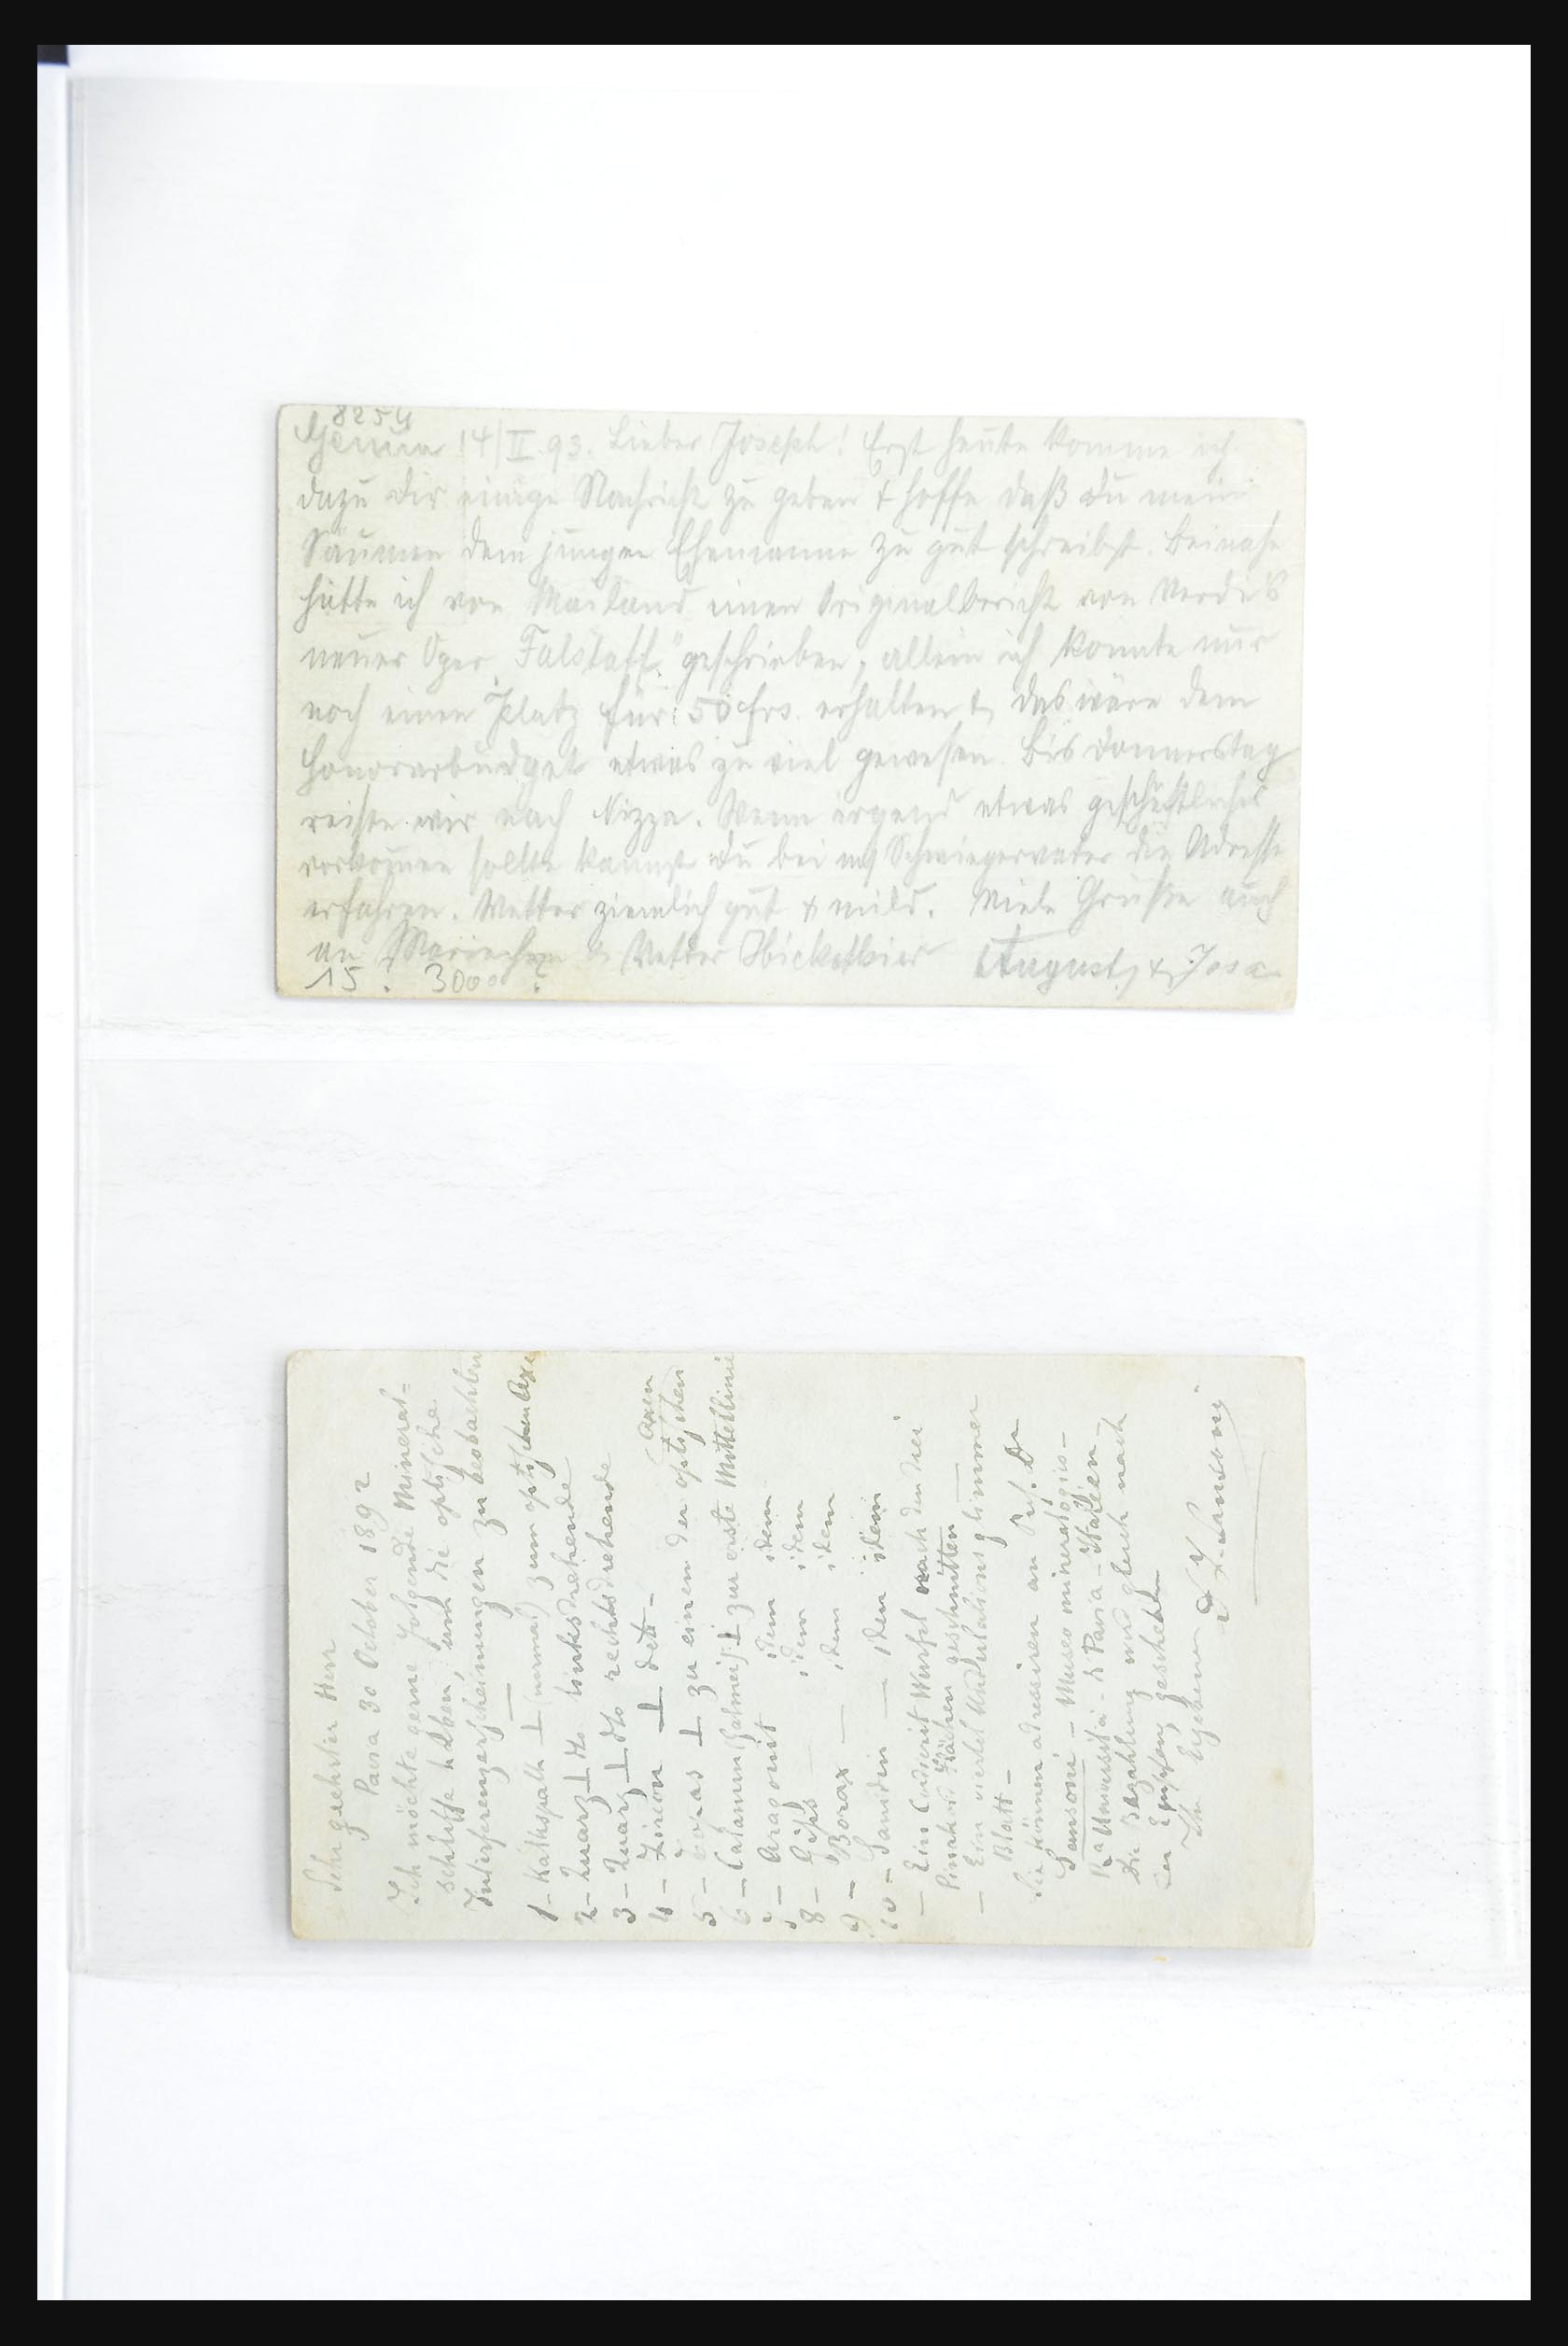 8254
Genua 14/II 93. Lieber Joseph! Erst heute komme ich
dazu dir einige Nachricht zu geben & hoffe daß du mein
Säumen dem jungen Ehemanne zu gut schreibst. Beinahe
hätte ich von Mailand einen Originalbericht von Verdi's
neuer Oper „Falstaff" geschrieben, allein ich konnte nur
noch einen Platz für 150 frs. erhalten & das wäre dem
Honorarbudget etwas zu viel gewesen. Bis Donnerstag
reisen wir nach Nizza. Wenn irgend etwas geschäftliches
vorkommen sollte kannst du bei m/ Schwiegervater die Adresse
erfahren. Wetter ziemlich gut & mild. Viele Grüße auch
an Mariechen & Vetter August &
15. 3000
Sehr geehrter Herr
Pavia 30 October 1892
Ich möchte gerne folgende Mineral=
schliffe haben, um die optische
Interferenzerscheinungen zu beobachten
1 – Kalkspath ⊥ (normal) zum optischen Axe
2 – Quarz ⊥ dto linksdrehende
3 – Quarz ⊥ dto rechtsdrehende
4 – Zircon ⊥ dett –
5 – Topas ⊥ zu einem der optischen Axen
6 – Calamin (Galmei) ⊥ zur erste Mittellinie
7 – Aragonit idem idem
8 – Gips idem idem
9 – Borax — idem idem
10 – Sanidin — idem idem
— Ein Cordierit Würfel nach den drei
Pinakoid Flächen geschnitten
— Ein viertel Undulations glimmer
Blatt –
Sie können adressiren an Prof. Dr
Sansoni – Museo mineralogico –
Rª Università di Pavia – Italien –
Die Bezahlung wird gleich nach
der Empfang geschehen
Ihr Ergebener
Dr F. Sansoni